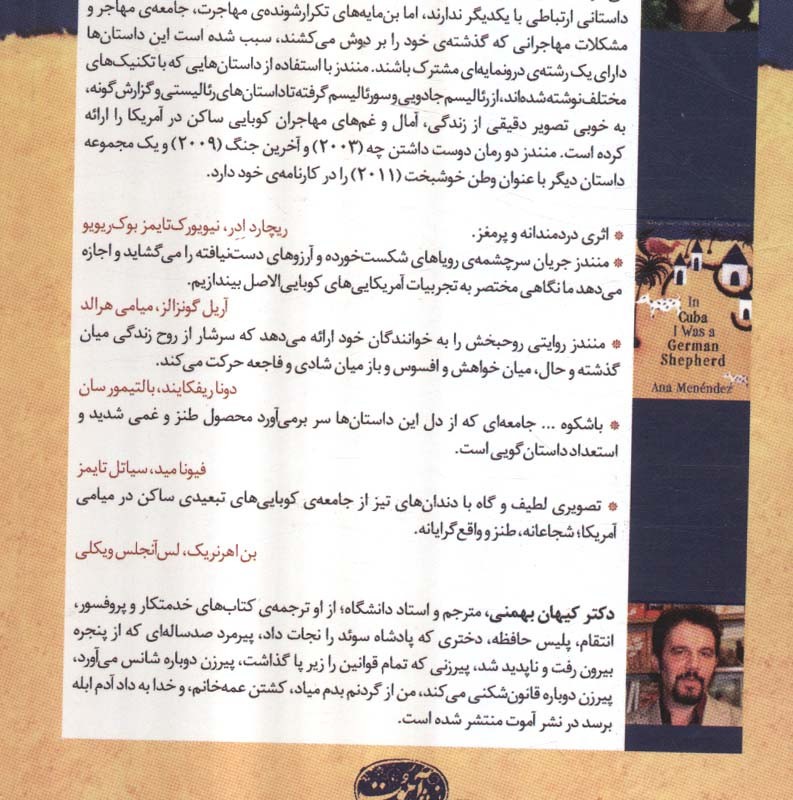 داستانی ارتباطی با یکدیگر ندارند، اما بن‌مایه‌های تکرارشونده‌ی مهاجرت، جامعه‌ی مهاجر و
مشکلات مهاجرانی که گذشته‌ی خود را بر دوش می‌کشند، سبب شده است این داستان‌ها
دارای یک رشته‌ی درونمایه‌ای مشترک باشند. منندز با استفاده از داستان‌هایی که با تکنیک‌های
مختلف نوشته شده‌اند، از رئالیسم جادویی و سورئالیسم گرفته تا داستان‌های رئالیستی و گزارش‌گونه،
به خوبی تصویر دقیقی از زندگی، آمال و غم‌های مهاجران کوبایی ساکن در آمریکا را ارائه
کرده است. منندز دو رمان دوست داشتن چه (۲۰۰۳) و آخرین جنگ (۲۰۰۹) و یک مجموعه
داستان دیگر با عنوان وطن خوشبخت (۲۰۱۱) را در کارنامه‌ی خود دارد.
* اثری دردمندانه و پرمغز. ریچارد اِدِر، نیویورک‌تایمز بوک‌ریویو
* منندز جریان سرچشمه‌ی رویاهای شکست‌خورده و آرزوهای دست‌نیافته را می‌گشاید و اجازه
می‌دهد ما نگاهی مختصر به تجربیات آمریکایی‌های کوبایی‌الاصل بیندازیم.
آریل گونزالز، میامی هرالد
* منندز روایتی روحبخش را به خوانندگان خود ارائه می‌دهد که سرشار از روح زندگی میان
گذشته و حال، میان خواهش و افسوس و باز میان شادی و فاجعه حرکت می‌کند.
دونا ریفکایند، بالتیمور سان
* باشکوه ... جامعه‌ای که از دل این داستان‌ها سر برمی‌آورد محصول طنز و غمی شدید و
استعداد داستان‌گویی است.
فیونا مید، سیاتل تایمز
* تصویری لطیف و گاه با دندان‌های تیز از جامعه‌ی کوبایی‌های تبعیدی ساکن در میامی
آمریکا؛ شجاعانه، طنز و واقع‌گرایانه.
بن اهرنریک، لس‌آنجلس ویکلی
In
Cuba
I Was a
German
Shepherd
Ana Menéndez
دکتر کیهان بهمنی، مترجم و استاد دانشگاه؛ از او ترجمه‌ی کتاب‌های خدمتکار و پروفسور،
انتقام، پلیس حافظه، دختری که پادشاه سوئد را نجات داد، پیرمرد صدساله‌ای که از پنجره
بیرون رفت و ناپدید شد، پیرزنی که تمام قوانین را زیر پا گذاشت، پیرزن دوباره شانس می‌آورد،
پیرزن دوباره قانون‌شکنی می‌کند، من از گردنم بدم میاد، کشتن عمه‌خانم، و خدا به داد آدم ابله
برسد در نشر آموت منتشر شده است.
آموت